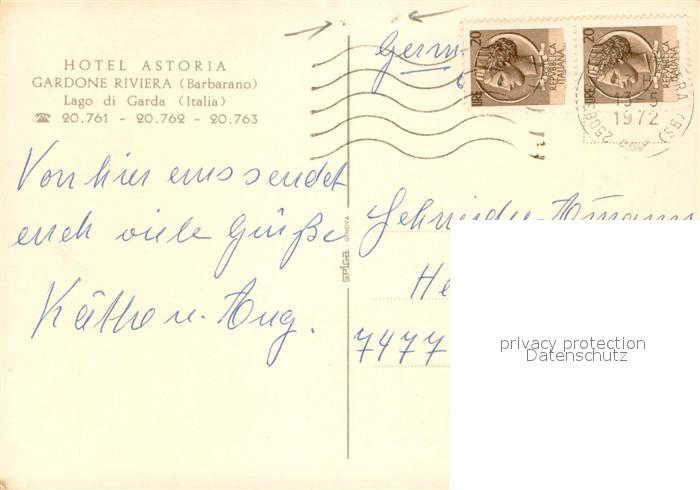 HOTEL ASTORIA
GARDONE RIVIERA (Barbarano)
Lago di Garda (Italia)
☎ 20.761 - 20.762 - 20.763
Von hier aus sendet
euch viele Grüße
Käthe u. Aug.
SPIGA GENOVA
Germ
LIRE 20
REPUBBLICA ITALIANA
LIRE 20
REPUBBLICA ITALIANA
1972
(BS)
He
7477
privacy protection
Datenschutz